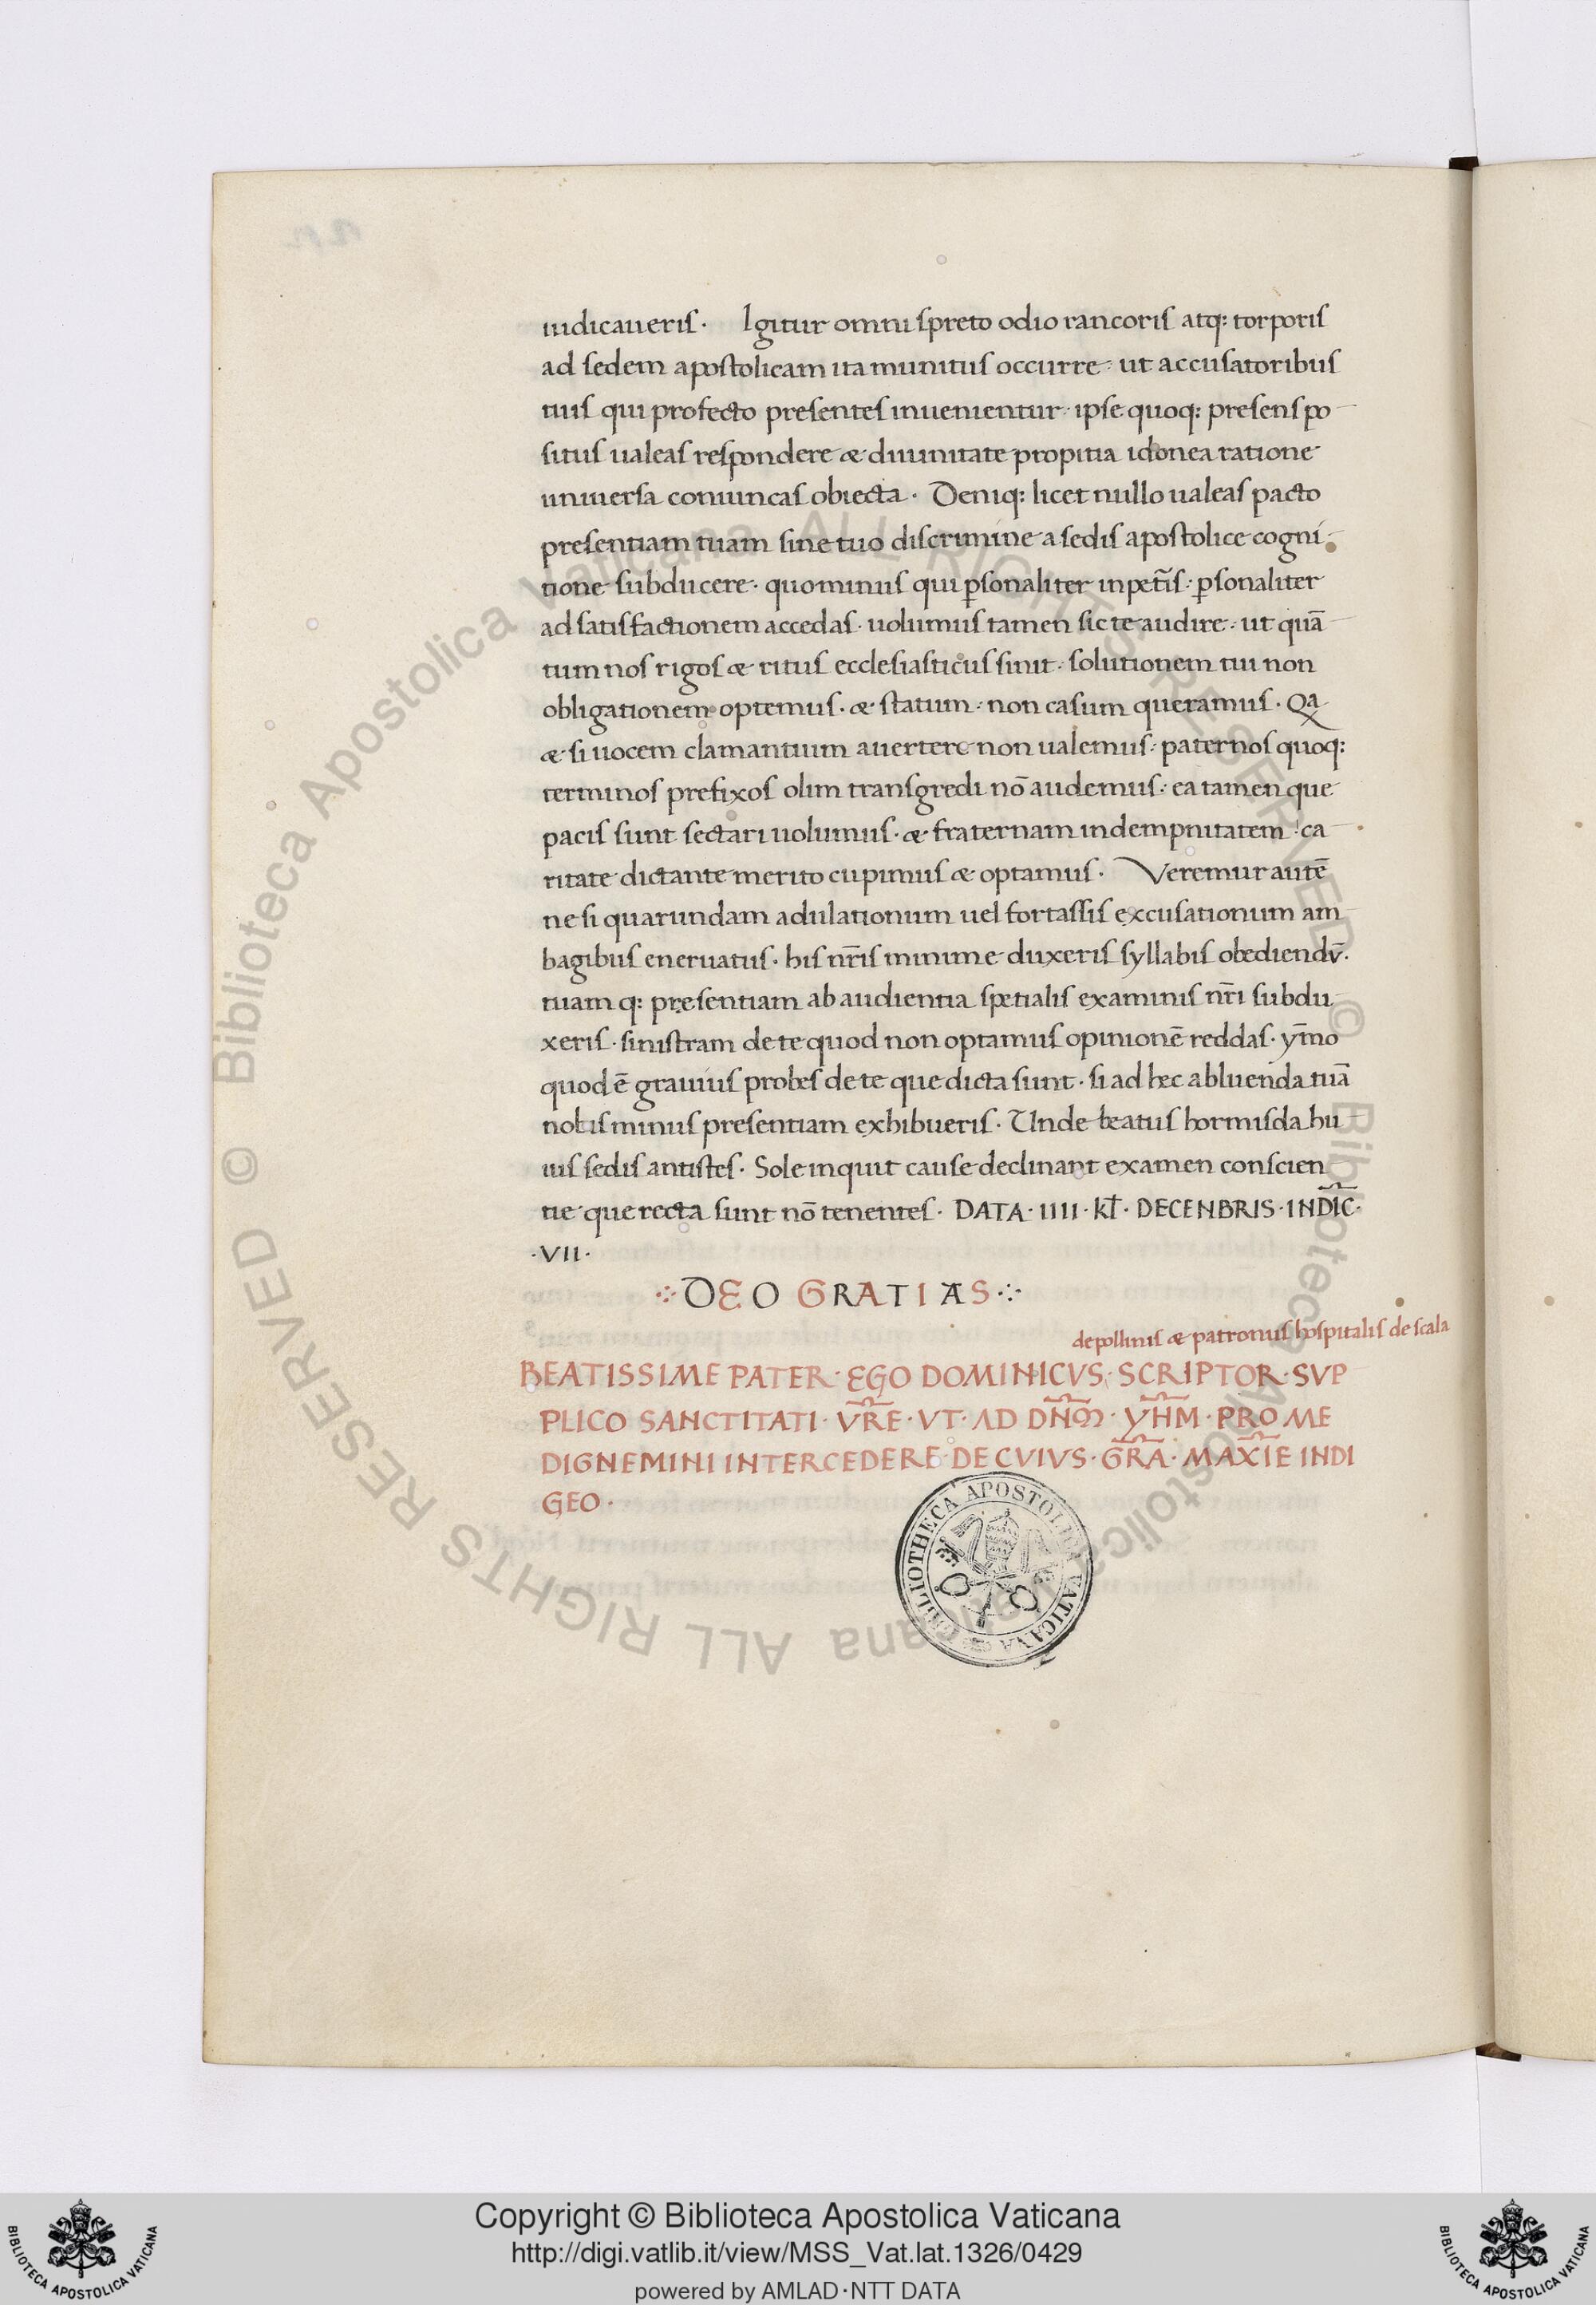 iudicaueris · Igitur omni spreto odio rancoris atq: torporis
ad sedem apostolicam ita munitus occurre · ut accusatoribus
tuis qui profecto presentes inuenientur · ipse quoq: presens po
situs ualeas respondere æ diuinitate propitia idonea ratione
uniuersa conuincas obiecta · Deniq: licet nullo ualeas pacto
presentiam tuam sine tuo discrimine a sedis apostolice cogni
tione subducere · quominus qui p̱sonaliter inpet̃is · p̱sonaliter
ad satisfactionem accedas · uolumus tamen sic te audire · ut quã
tum nos rigos æ ritus ecclesiasticus sinit · solutionem tui non
obligationem optemus · æ statum · non casum queramus · Qa
æ si uocem clamantium auertere non ualemus · paternos quoq:
terminos prefixos olim transgredi nõ audemus · ea tamen que
pacis sunt sectari uolumus · æ fraternam indempnitatem · ca
ritate dictante merito cupimus æ optamus · Veremur autẽ
ne si quarundam adulationum uel fortassis excusationum am
bagibus eneruatus · his nr̃is minime duxeris syllabis obediendṽ.
tuam q: presentiam ab audientia spetialis examinis nr̃i subdu
xeris · sinistram de te quod non optamus opinionẽ reddas · ym̃o
quod ẽ grauius probes de te que dicta sunt · si ad hec abluenda tuã
nobis minus presentiam exhibueris · Unde beatus hormisda hu
ius sedis antistes · Sole inquit cause declinant examen conscien
tie que recta sunt nõ tenentes · DATA · IIII · Kl̃ · DECENBRIS · INDĨC ·
· VII ·
DEO GRATIAS
de pollinis æ patronus hospitalis de scala
BEATISSIME PATER · EGO DOMINICVS · SCRIPTOR · SVP
PLICO SANCTITATI · VR̃E · VT · AD DÑM · YH̃M · PRO ME
DIGNEMINI INTERCEDERE · DE CVIVS · GR̃A · MAXĨE INDI
GEO ·
BIBLIOTHECA APOSTOLICA VATICANA
© Biblioteca Apostolica Vaticana ALL RIGHTS RESERVED
© Biblioteca Apostolica Vaticana ALL RIGHTS RESERVED
Copyright © Biblioteca Apostolica Vaticana
http://digi.vatlib.it/view/MSS_Vat.lat.1326/0429
powered by AMLAD·NTT DATA
BIBLIOTECA APOSTOLICA VATICANA
BIBLIOTECA APOSTOLICA VATICANA